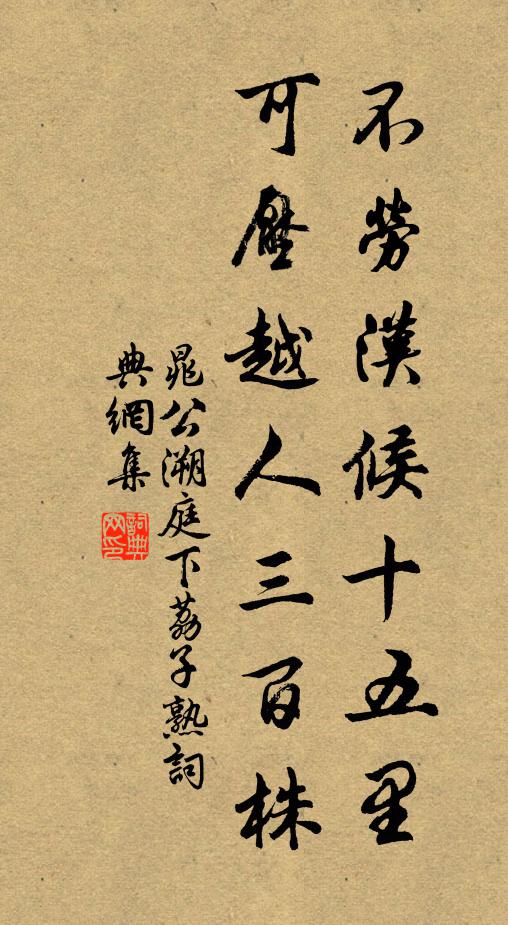 不勞漢候十五里
可壓越人三百株
晁公溯庭下荔子熟詞
典網集
詞典網印